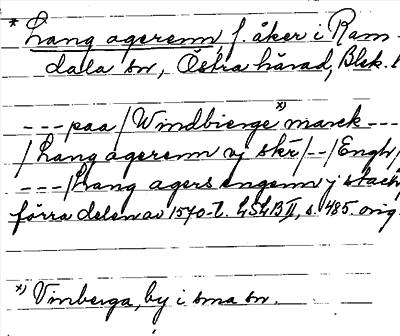 * Lang agerenn, f. åker i Ram-
dala sn, Östra härad, Blek. l
---paa/Windbierge x) marck---
/Lang agerenn vj skr/--/Engh/
---/Lang agers engenn j stack
förra delen av 1570-t. LSLB II, s. 485. orig.
x) Vinberga, by i sma sn.